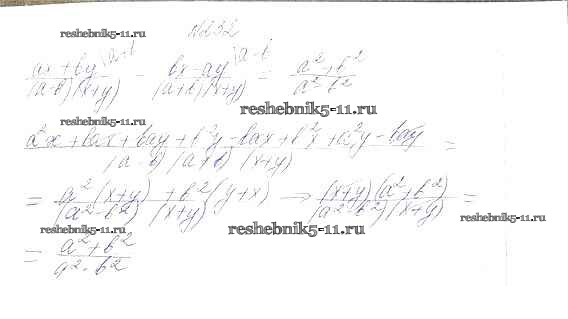 N232
reshebnik5-11.ru
(ax+by)/((a-b)(x+y)) |a+b - (bx-ay)/((a+b)(x+y)) |a-b = (a²+b²)/(a²-b²)
reshebnik5-11.ru
(a²x+bax+bay+b²y-bax+b²x+a²y-bay)/((a-b)(a+b)(x+y)) =
= (a²(x+y)+b²(y+x))/((a²-b²)(x+y)) → ((x+y)(a²+b²))/((a²-b²)(x+y)) =
reshebnik5-11.ru
reshebnik5-11.ru reshebnik5-11.ru
= (a²+b²)/(a²-b²)